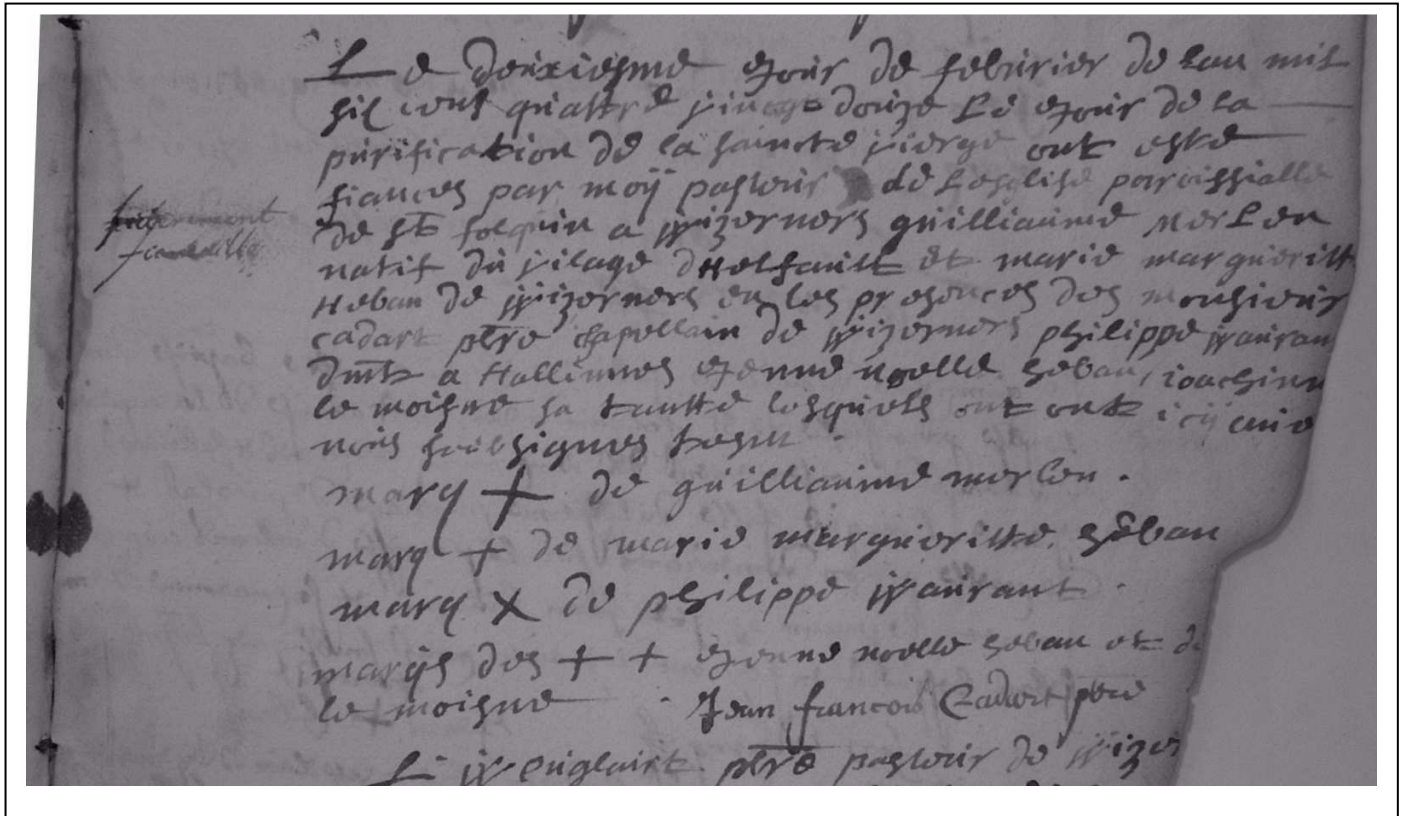 Le deuxiesme jour de febvrier de l'an mil
six cent quattre vingt douze le jour de la
purification de la saincte vierge ont esté
fiances par moÿ pasteur de l'esglise paroissialle
de St folquin a wizerners guilliaume Merlen
natif du vilage d'Helfault et marie margueritte
Heban de wizerners en les presences des monsieur
cadart pbre chapellain de wizerners philippe wauran
dmt a Hallinnes jenne noelle heban, ioachinne
le moisne sa tantte lesquels ont ont icÿ
nous soubsignes
marq + de guilliaume merlen .
marq + de marie margueritte heban
marq X de philippe waurant .
marqs des + + jenne noelle heban et de
le moisne Jean francois Cadart pbre
pbre pasteur de wizer